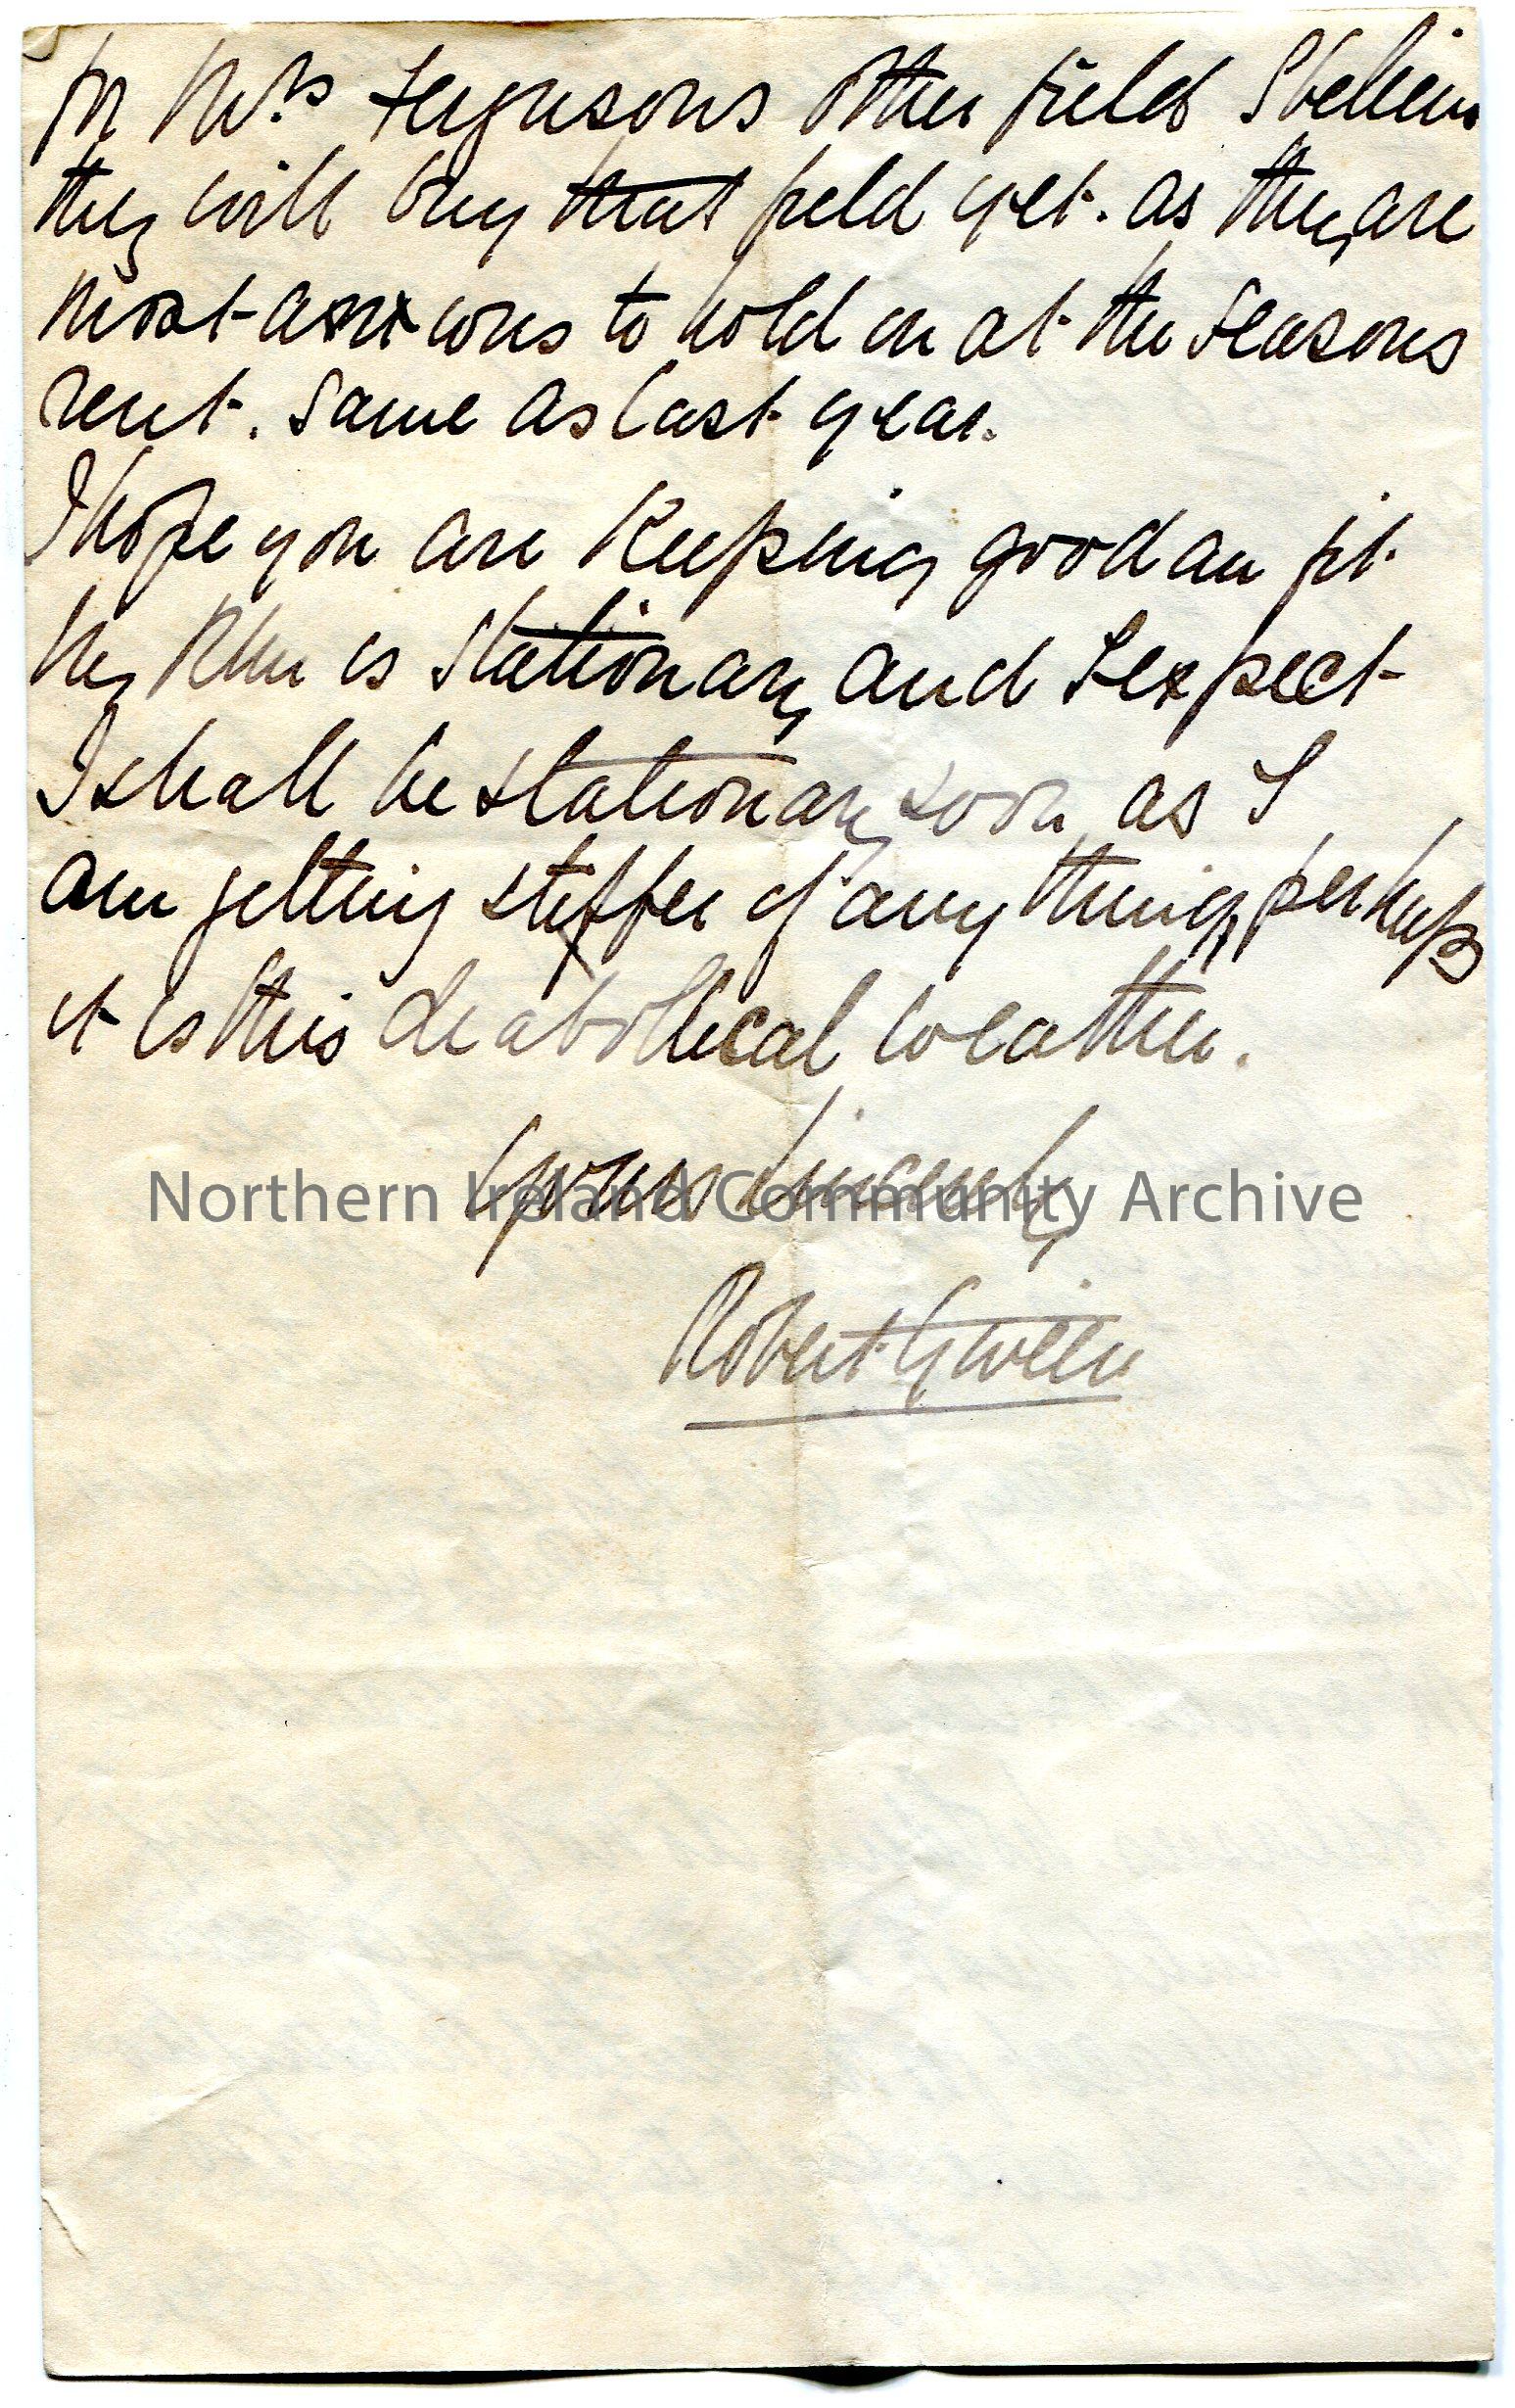 for Mrs Fergusons other field I believe
they will buy that field yet. as they are
most anxious to hold on at the Seasons
rent. Same as last year.
I hope you are Keeping good an fit
My Rhu is Stationary and I expect
I shall be stationary soon as I
am getting stiffer if any thing, perhaps
it is this diabollical weather.
Yours Sincerely
Northern Ireland Community Archive
Robert Gween